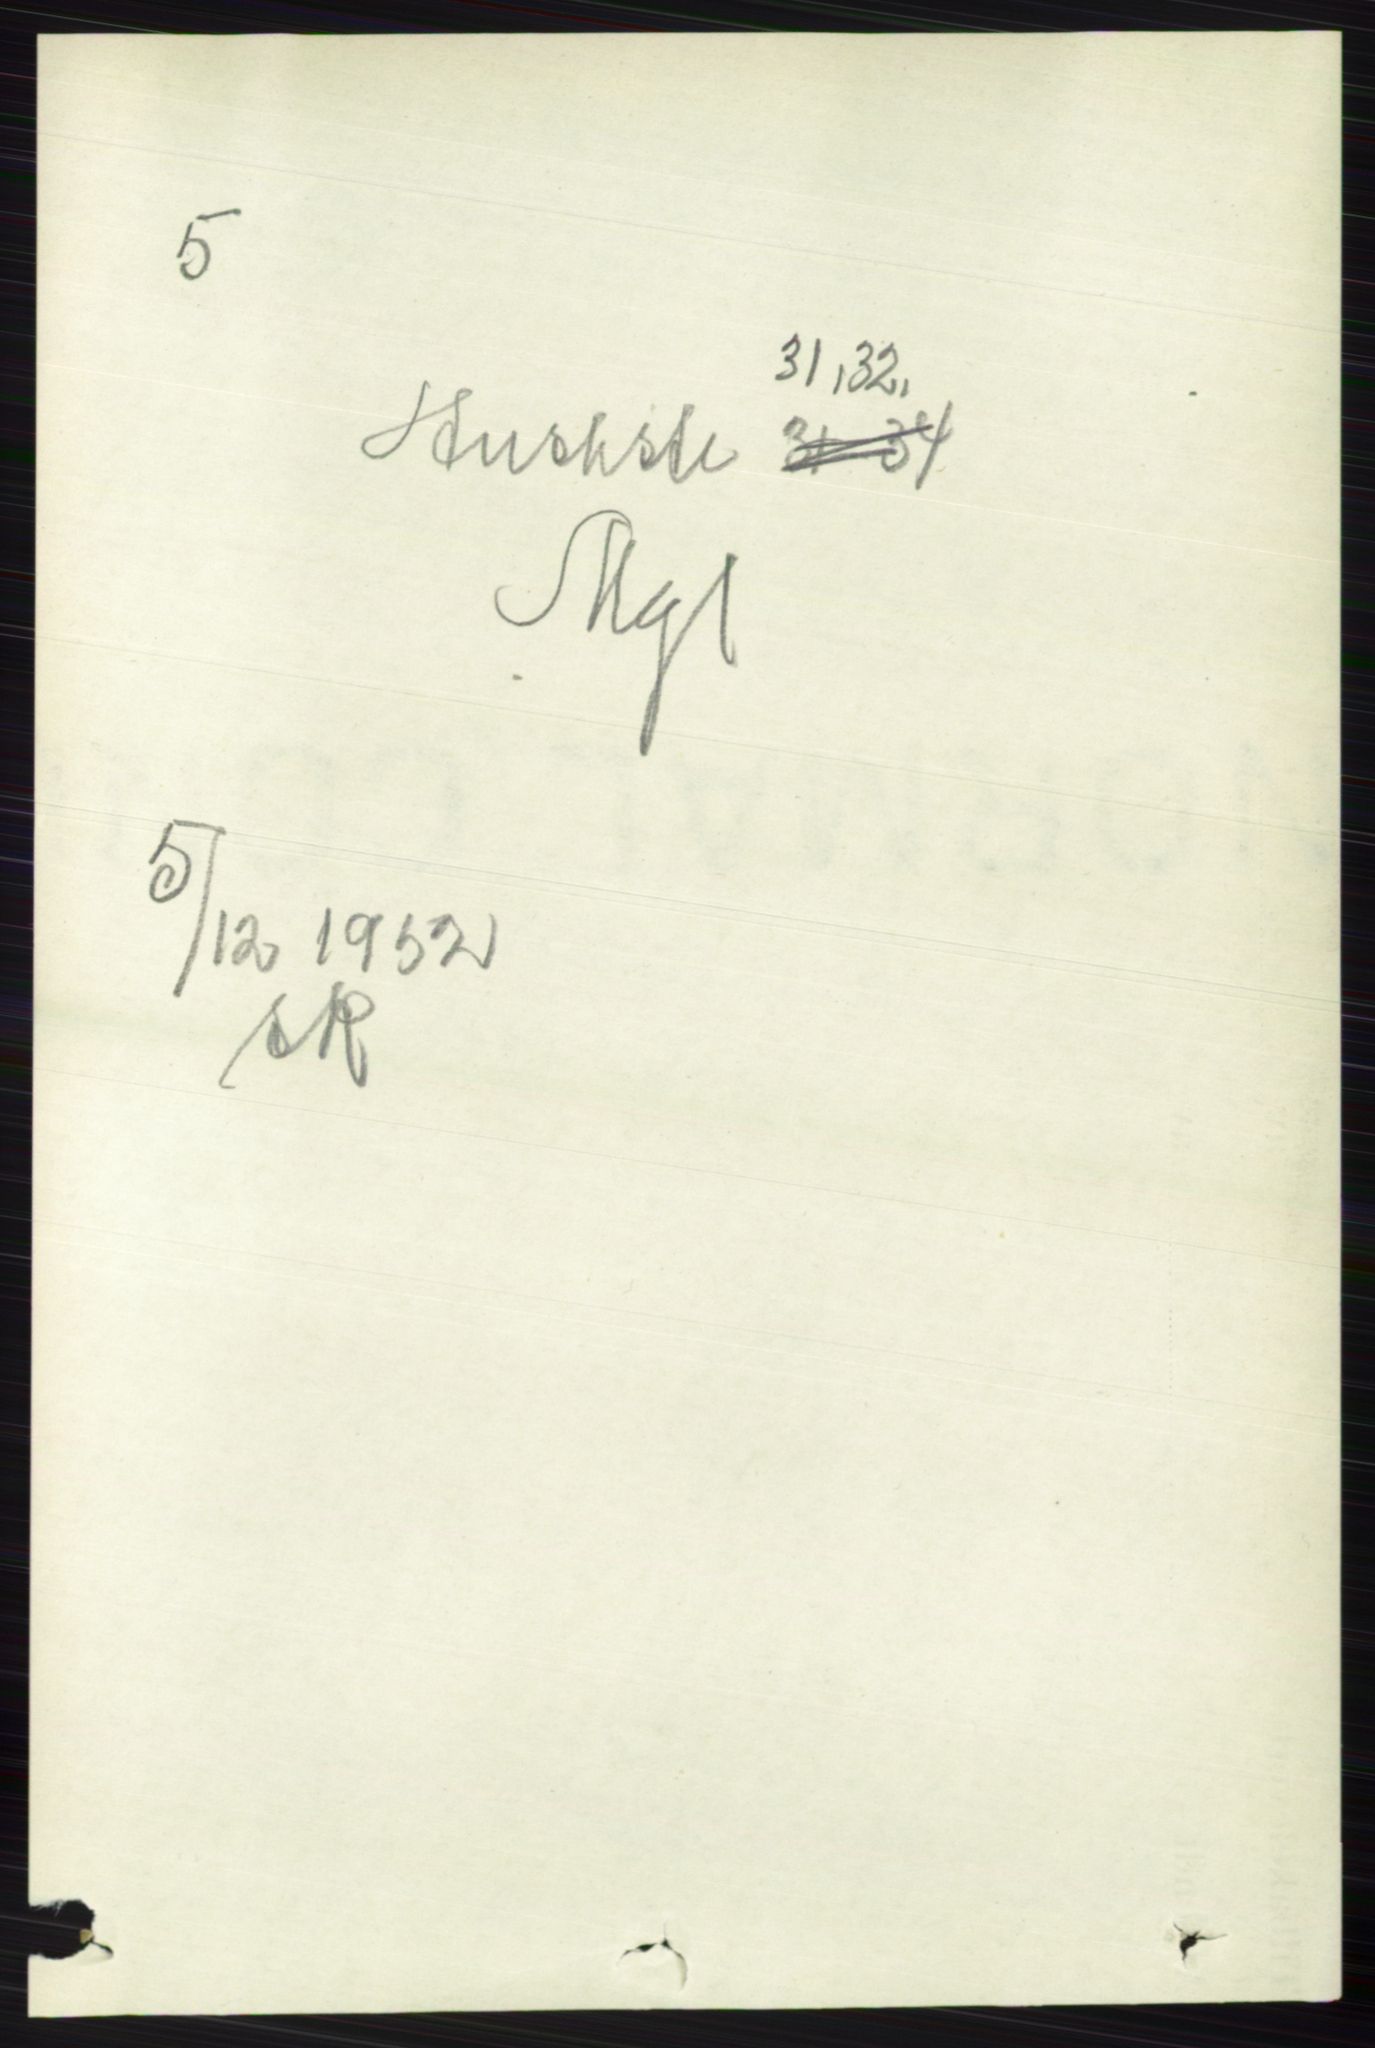 5
31, 32,
Huskste 31 34
Mgl
5/12 1952
SR